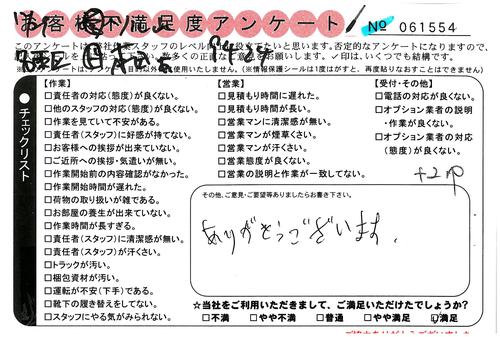 お客様不満足度アンケート
№ 061554
このアンケートは
スタッフのレベル向上に役立てたいと思います。否定的なアンケートになりますので、
いつでも結構です。
【作業】
□責任者の対応(態度)が良くない。
□他のスタッフの対応(態度)が良くない。
□作業を見ていて不安がある。
□責任者(スタッフ)に好感が持てない。
□お客様への挨拶が出来ていない。
□ご近所への挨拶・気遣いが無い。
□作業開始前の内容確認がなかった。
□作業開始時間が遅れた。
□荷物の取り扱いが雑である。
□お部屋の養生が出来ていない。
□作業時間が長すぎる。
□責任者(スタッフ)に清潔感が無い。
□責任者(スタッフ)が汗くさい。
□トラックが汚い。
□梱包資材が汚い。
□運転が不安(下手)である。
□靴下の履き替えをしてない。
□スタッフにやる気がみられない。
【営業】
□見積もり時間に遅れた。
□見積もり時間が長い。
□営業マンに清潔感が無い。
□営業マンが煙草くさい。
□営業マンが汗くさい。
□営業態度が良くない。
□営業の説明と作業が一致してない。
【受付・その他】
□電話の対応が良くない。
□オプション業者の説明
・作業が良くない。
□オプション業者の対応
(態度)が良くない。
チェックリスト
その他、ご意見・ご要望等ありましたらお書き下さい。
ありがとうございます。
☆当社をご利用いただきまして、ご満足いただけたでしょうか?
□不満 □やや不満 □普通 □やや満足 ☑満足